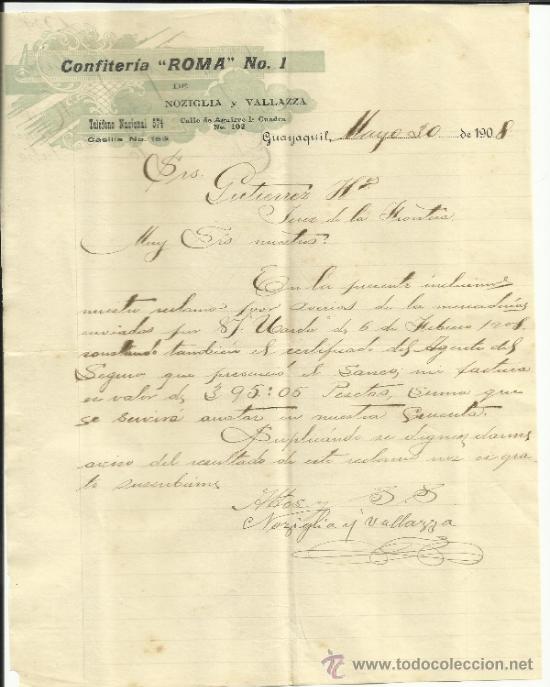 Confitería "ROMA" No. 1
DE
NOZIGLIA y VALLAZZA
Teléfono Nacional 574
Calle de Aguirre 1ª Cuadra
Casilla No.
No. 102
Guayaquil, Mayo 20 de 1908
Srs.
Gutierrez Hº
Jerez de la Frontera
Muy Srs nuestros:
En la presente incluimos
nuestro reclamo por averias de la mercaderia
enviados por de 6 de Febrero 1908,
tambien el certificado del Agente del
Seguro que presenció el Saneo, mi factura
en valor de 95:05 Pesetas, suma que
se servirá anotar en nuestra Cuenta.
Suplicándo se dignen darnos
aviso del resultado de este reclamo nos es gra
to suscribirnos
Attos y S S
Noziglia y Vallazza
todocoleccion
www.todocoleccion.net